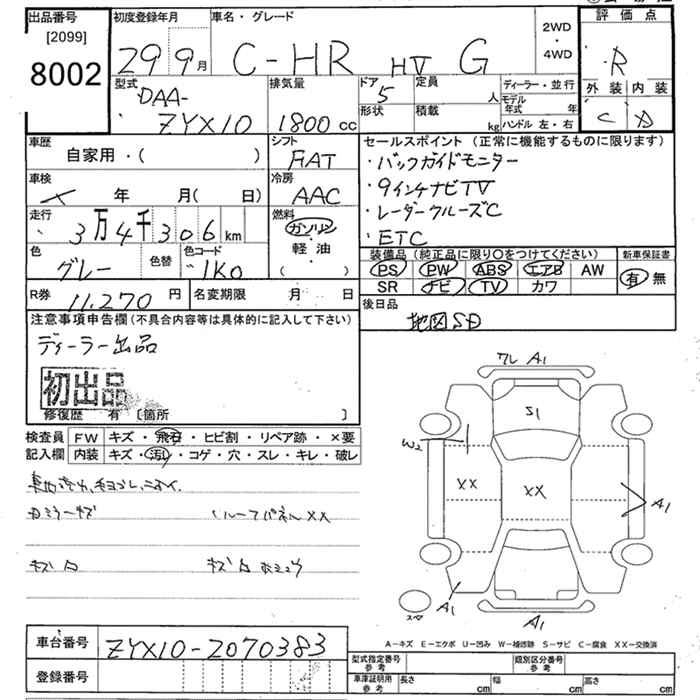 出品番号
[2099]
8002
初度登録年月
29 9月
車名・グレード
C-HR HV G
2WD
・
4WD
評価点
R
外装 内装
C
型式
DAA-
ZYX10
排気量
1800cc
ドア 5
形状
定員 人
積載 kg
ディーラー・並行
モデル年式 年
ハンドル 左・右
車歴
自家用・( )
シフト
FAT
車検
年 月( 日)
冷房
AAC
走行
3万4千306km
燃料
ガソリン
・
軽油
( )
色
グレー
色替
色コード
1K0
R券 11,270円
名変期限 月 日
セールスポイント (正常に機能するものに限ります)
・バックガイドモニター
・9インチナビTV
・レーダークルーズC
・ETC
装備品(純正品に限り○をつけてください)
PS PW ABS エアB AW
SR ナビ TV カワ
新車保証書
有 無
後日品
地図SD
注意事項申告欄(不具合内容等は具体的に記入して下さい)
ディーラー出品
初出品
修復歴 有 〔箇所 〕
検査員 FW キズ・飛石・ヒビ割・リペア跡・×要
記入欄 内装 キズ・汚れ・コゲ・穴・スレ・キレ・破レ
ルーフパネルXX
ワレ A1
S1
W2
XX
XX
A1
A1
A1
A-キズ E-エクボ U-凹み W-補修跡 S-サビ C-腐食 XX-交換済
車台番号 ZYX10-2070383
登録番号
型式指定番号 参考
類別区分番号 参考
車庫証明用 参考
長さ cm
幅 cm
高さ cm